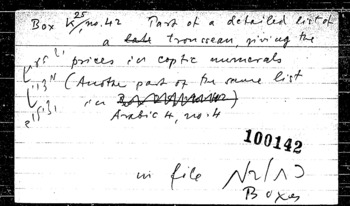 Box K 25, no. 42 Part of a detailed list of
a late trousseau, giving the
prices in coptic numerals
(Another part of the same list
in
Arabic 4, no. 4
100142
in file
Boxes